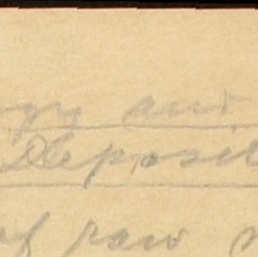 gy and
Deposit
of raw